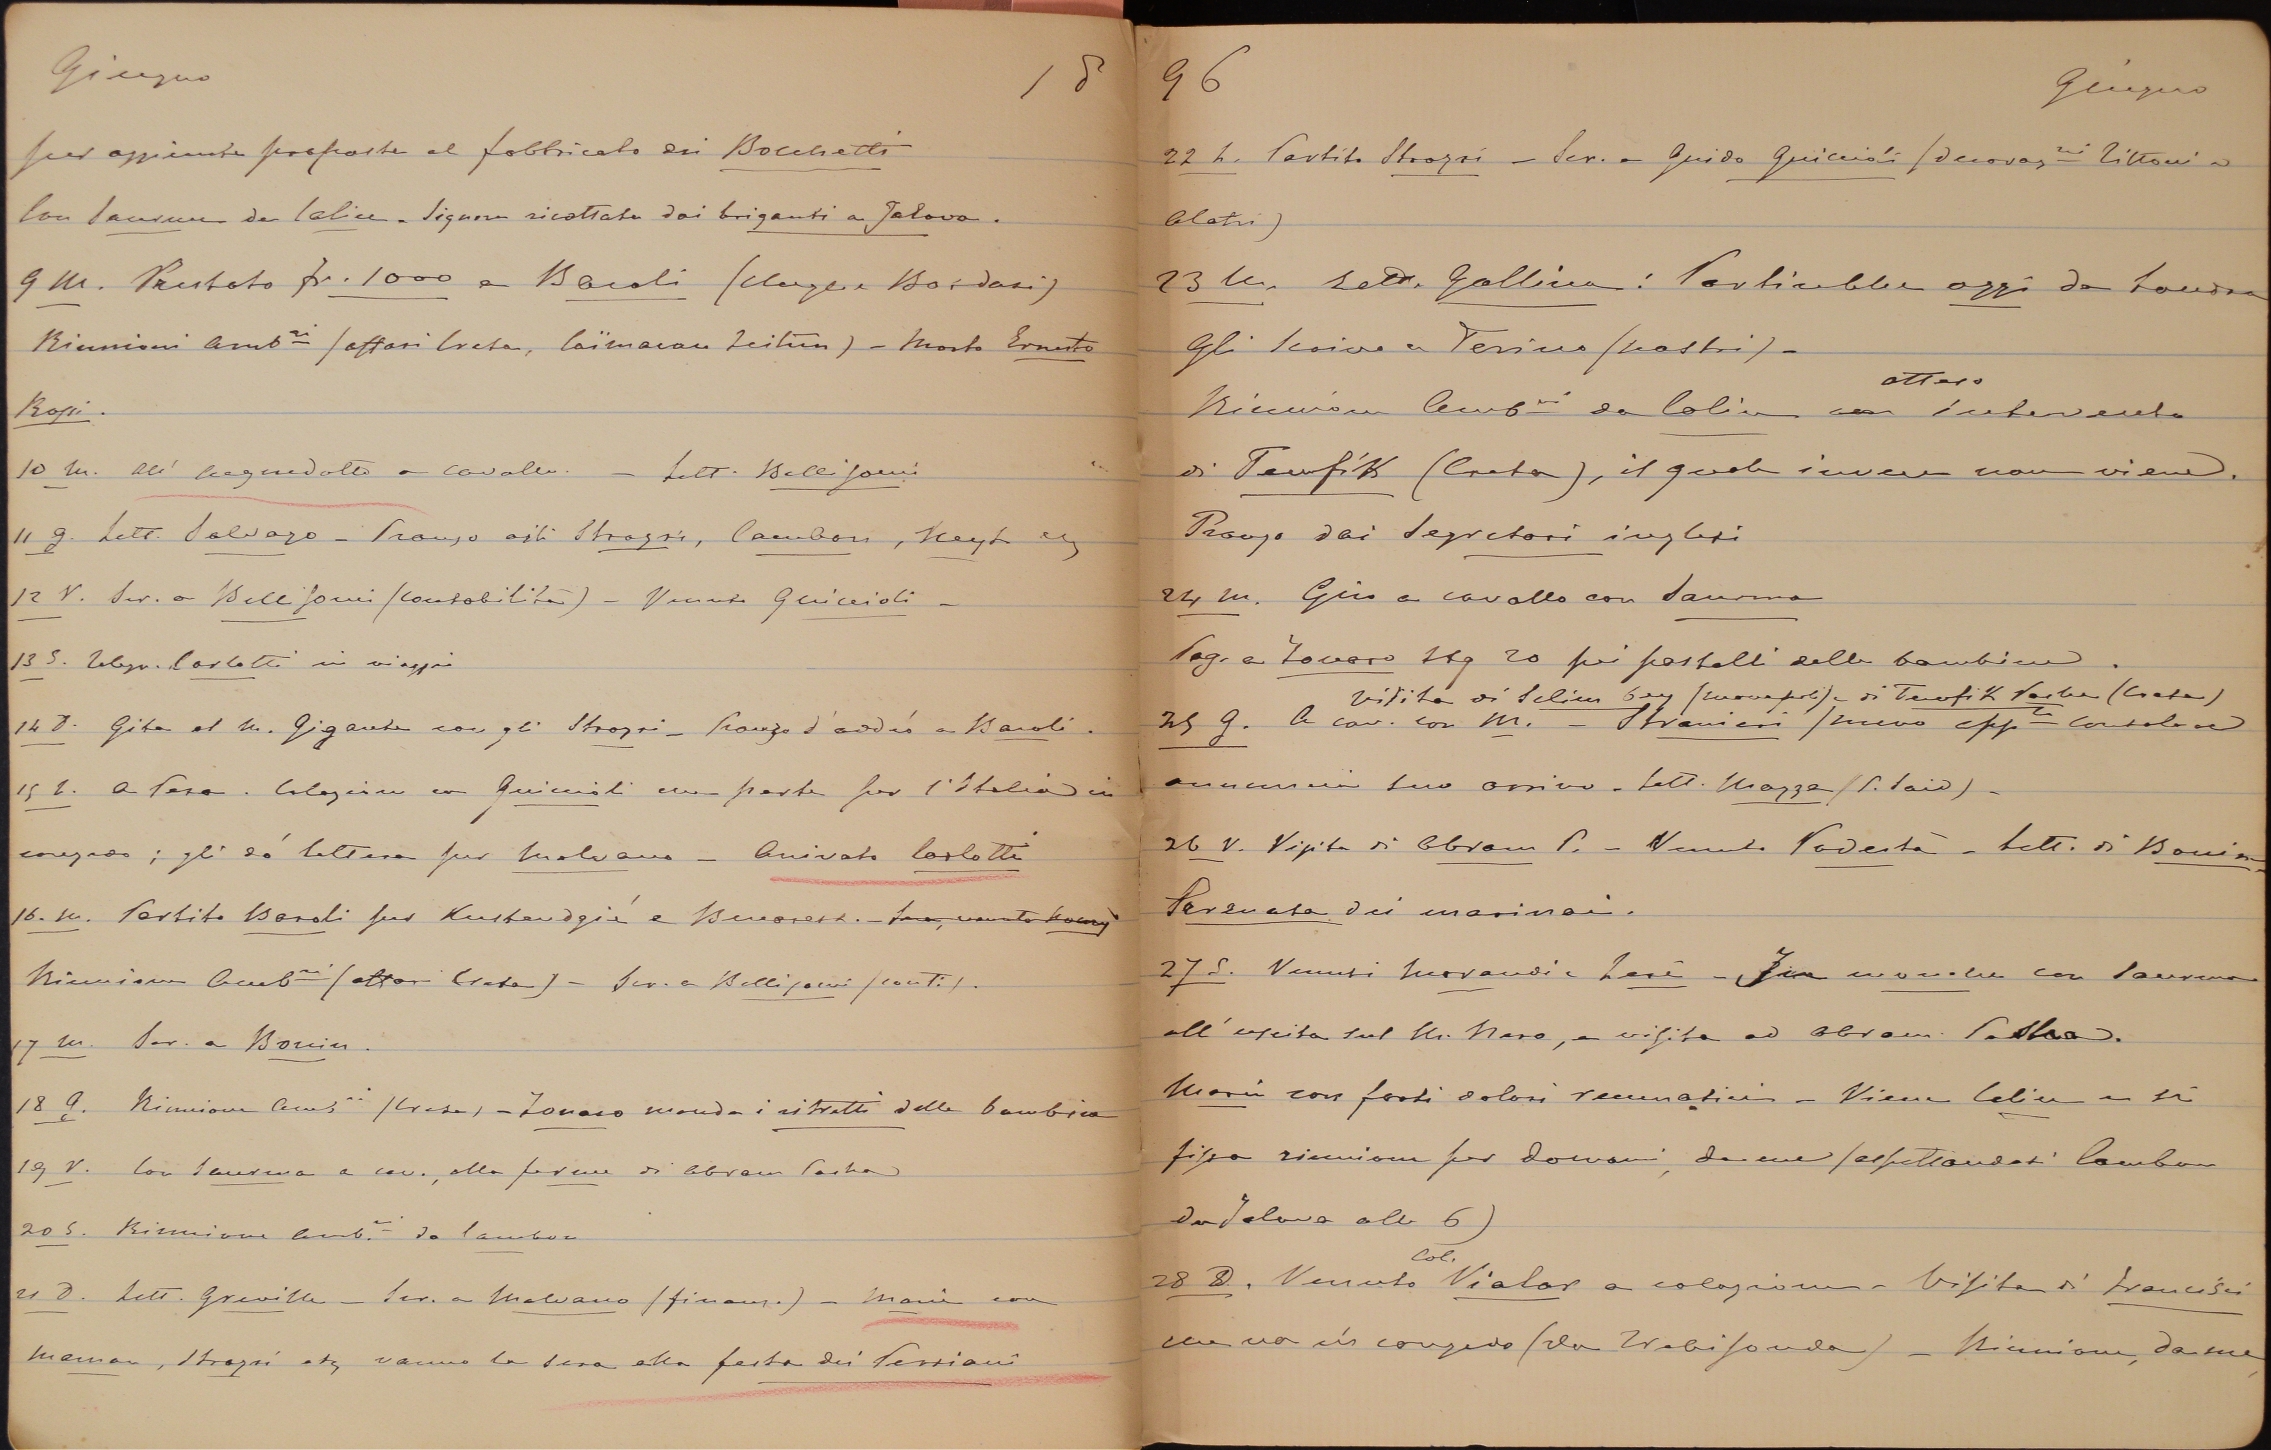 Giugno 18
per aggiunte proposte al fabbricato dei Bocchetti
Con Saurma da Calice. Signora ricattata dai briganti a Jalova.
9 M. Prestato fr. 1000 a Baroli (Mayer e Bosdari)
Riunioni Amb.ri (affari Creta, Caïmacan Zeitun) - Morto Ernesto
Rossi.
10 M. All'acquedotto a cavallo. - Lett. Bellisomi
11 G. Lett. Salvago - Pranzo agli Strozzi, Cambon,
12 V. Scr. a Bellisomi (contabilità) - Venuto Guiccioli -
13 S. Telegr. Carlotti in viaggio
14 D. Gita al M. Gigante con gli Strozzi - Pranzo d'addio a Baroli.
15 L. A Pera. Colazione con Guiccioli che parte per l'Italia in
congedo; gli dò lettera per Malvano - Arrivato Carlotti
16. M. Partito Baroli per Kustendgié e Bucarest. -
Riunione Amb.ri (affari Creta) - Scr. a Bellisomi (conti).
17 M. Scr. a Bonin.
18 G. Riunione Amb.ri (Creta) - Zonaro manda i ritratti delle bambine
19 V. Con Saurma a cav., alla ferme di Abram Pacha
20 S. Riunione Amb.ri da Cambon
21 D. Lett. Greville - Scr. a Malvano (finanz.) - Maria con
Maman, Strozzi etz vanno la sera alla festa dei Persiani
96 Giugno
22 L. Partito Strozzi - Scr. a Guido Guiccioli (decoraz.ni Tittoni e
Alatri)
23 M. Lett. Gallina: Partirebbe oggi da Londra
Gli scrivo a Torino (nostri) -
Riunione Amb.ri da Calice con atteso intervento
di Tewfik (Creta), il quale invece non viene.
Pranzo dai Segretari inglesi
24 M. Giro a cavallo con Saurma
Pag. a Zonaro Ltq 20 pei pastelli delle bambine.
visita di Selim bey (monopoli) e di Tewfik Pacha (Creta)
25 G. A cav. con M. - Stranieri (nuovo app.to consolare)
annunzia suo arrivo - Lett. Mazza (P. Said) -
26 V. Visita di Abram P. - Venuto Podestà - Lett. di Bonin -
Serenata dei marinai.
27 S. Venuti Morandi e Lesè - In mouche con Saurma
all'uscita sul M. Nero, e visita ad Abram Pacha.
Maria con forti dolori reumatici - Viene Calice e si
fissa riunione per domani, da me (aspettandosi Cambon
da Jalova alle 6)
28 D. Venuto Col. Vialar a colazione - Visita di Francisci
che va in congedo (da Trebisonda) - Riunione, da me,